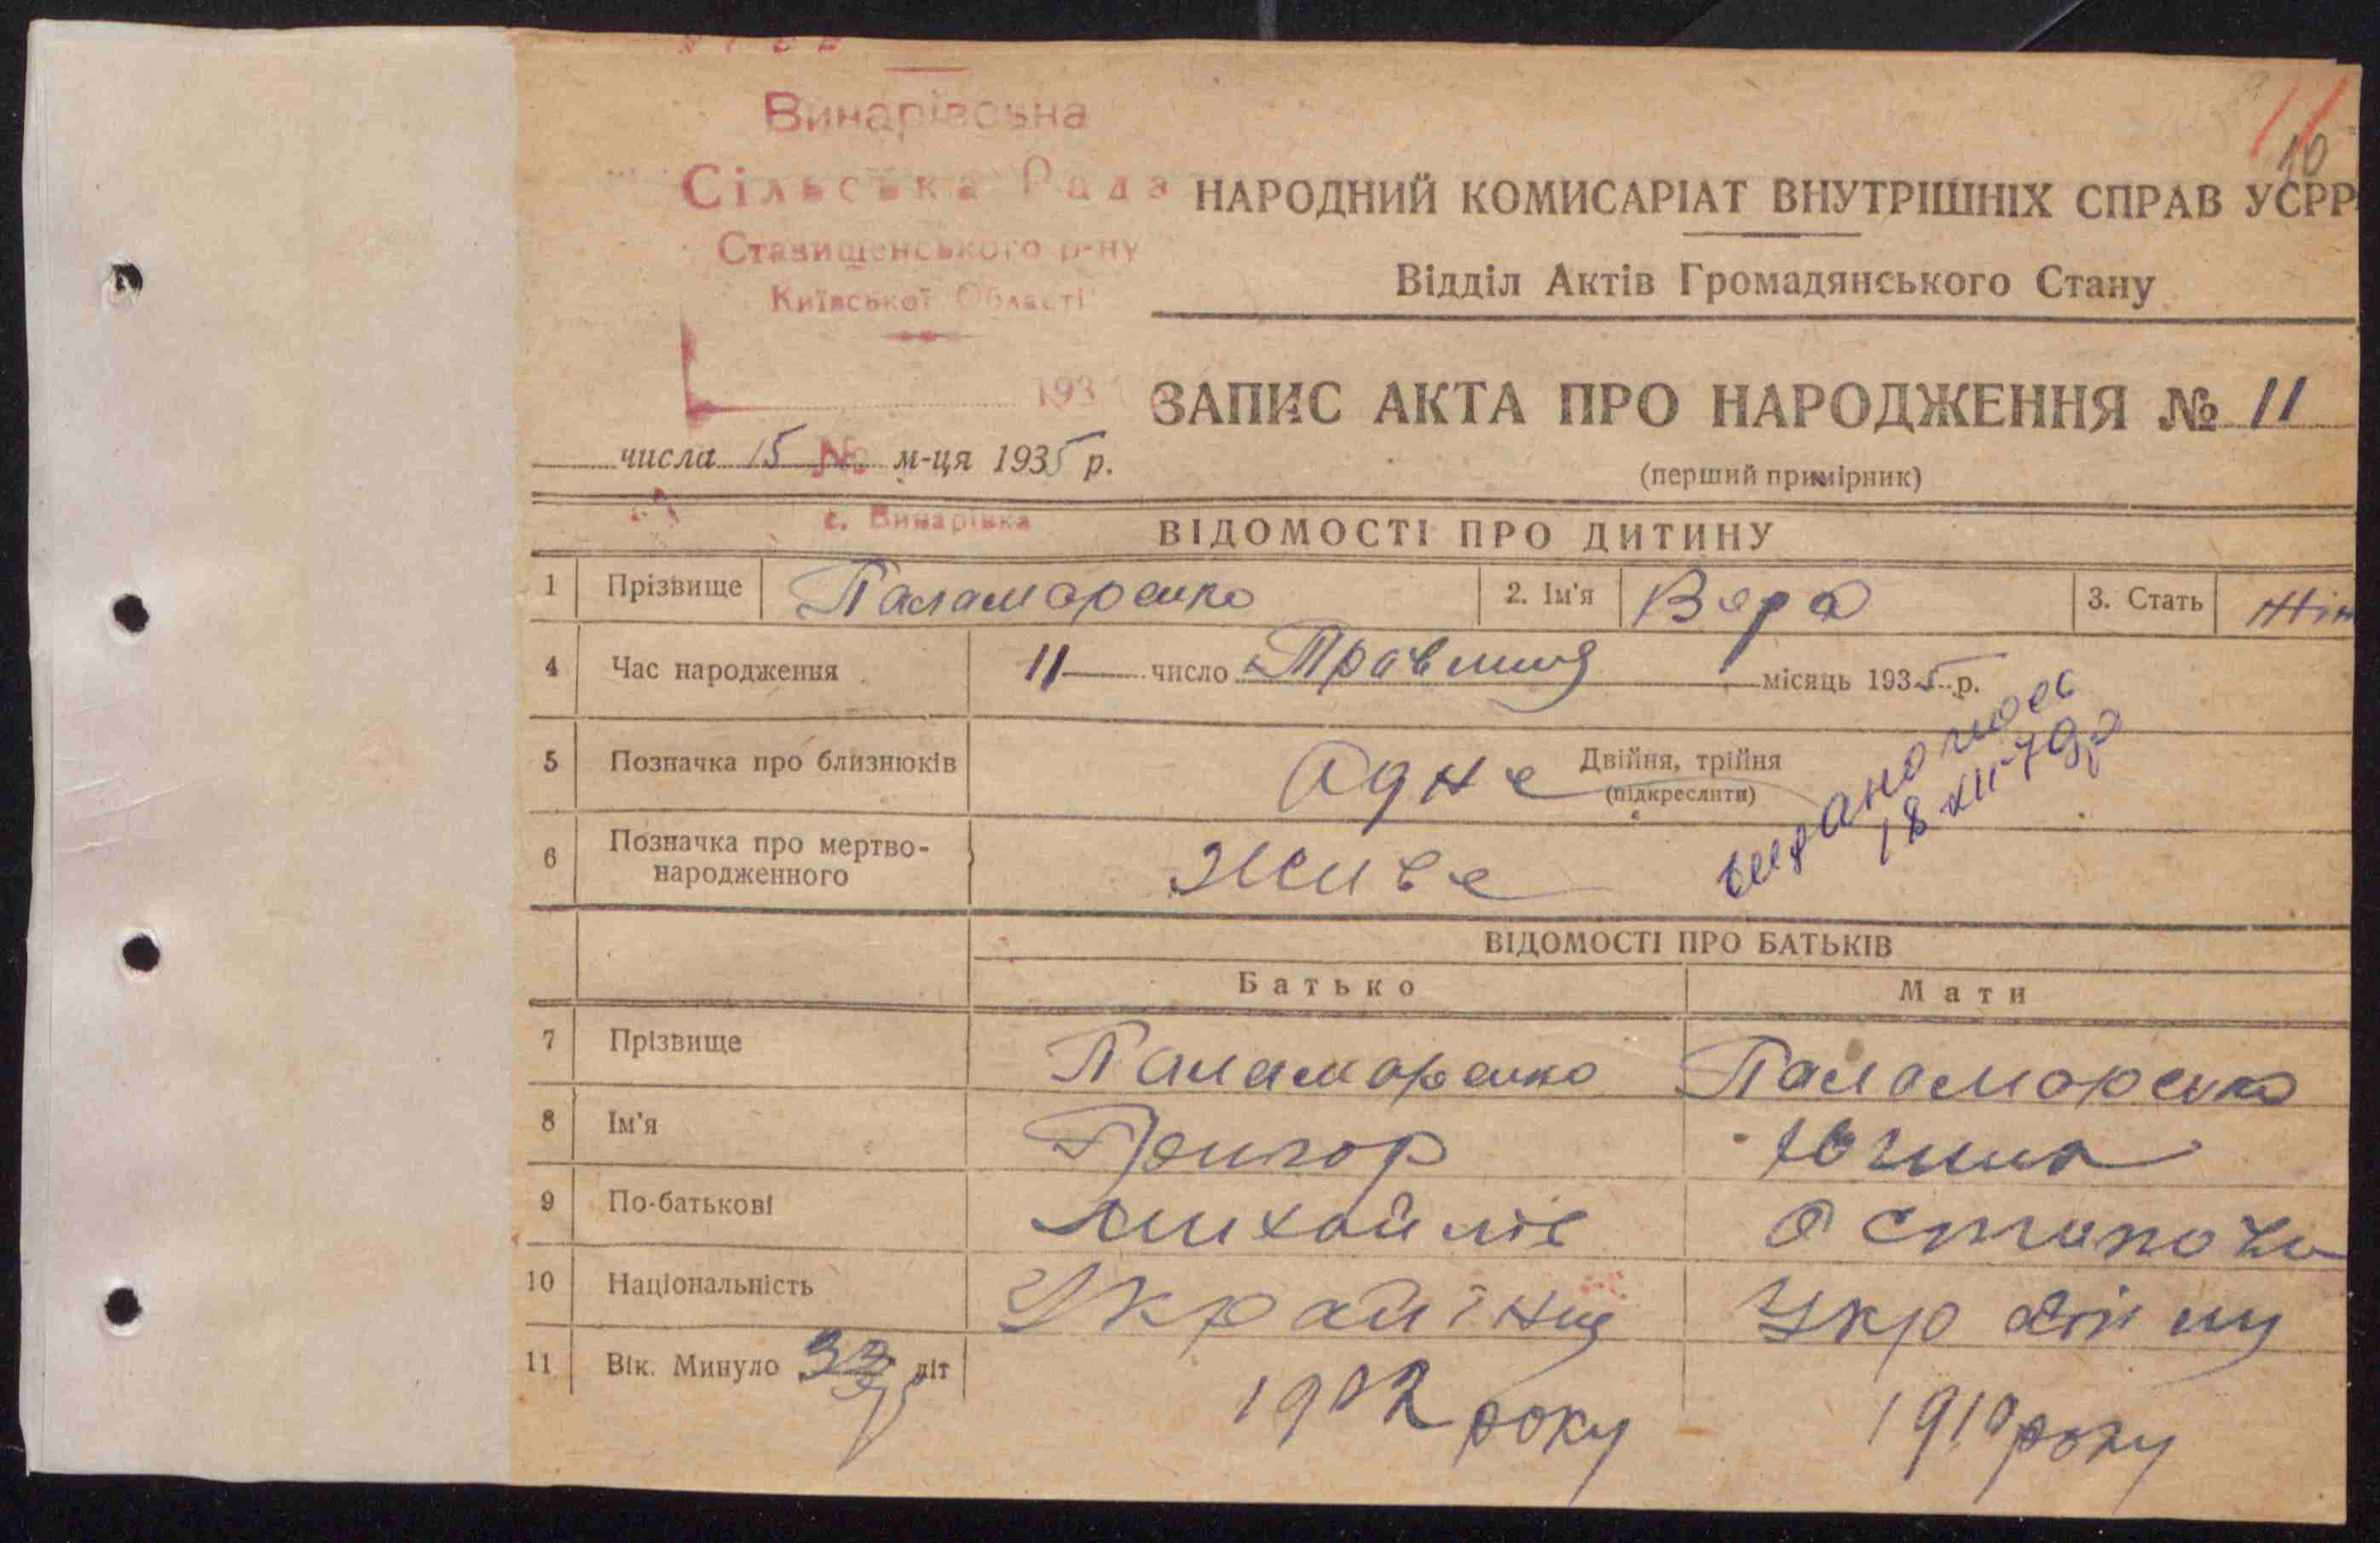 Винарівська
Сільська Рада
Ставищенського р-ну
Київської Області
193
№
с. Винарівка
11
10
НАРОДНИЙ КОМИСАРІАТ ВНУТРІШНІХ СПРАВ УСРР
Відділ Актів Громадянського Стану
ЗАПИС АКТА ПРО НАРОДЖЕННЯ № 11
(перший примірник)
числа 15 м-ця 1935 р.
ВІДОМОСТІ ПРО ДИТИНУ
1 Прізвище Паламаренко 2. Ім'я Вера 3. Стать Жін
4 Час народження 11 число Травня місяць 1935 р.
5 Позначка про близнюків Одне Двійня, трійня
(підкреслити)
18 XII 79
6 Позначка про мертво-
народженного Живе
ВІДОМОСТІ ПРО БАТЬКІВ
Батько Мати
7 Прізвище Паламаренко Паламаренко
8 Ім'я
9 По-батькові Михайлів Остаповн
10 Національність
11 Вік. Минуло літ 1902 року 1910 року